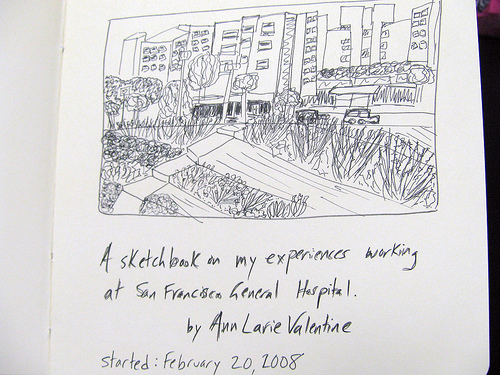 A sketchbook on my experiences working
at San Francisco General Hospital.
by Ann Larie Valentine
started: February 20, 2008